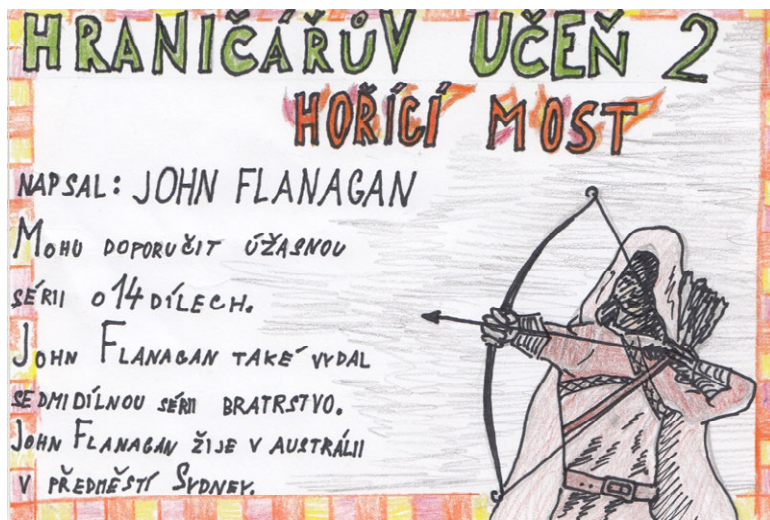 HRANIČÁŘŮV UČEŇ 2
HOŘÍCÍ MOST
NAPSAL: JOHN FLANAGAN
MOHU DOPORUČIT ÚŽASNOU
SÉRII O 14 DÍLECH.
JOHN FLANAGAN TAKÉ VYDAL
SEDMIDÍLNOU SÉRII BRATRSTVO.
JOHN FLANAGAN ŽIJE V AUSTRÁLII
V PŘEDMĚSTÍ SYDNEY.